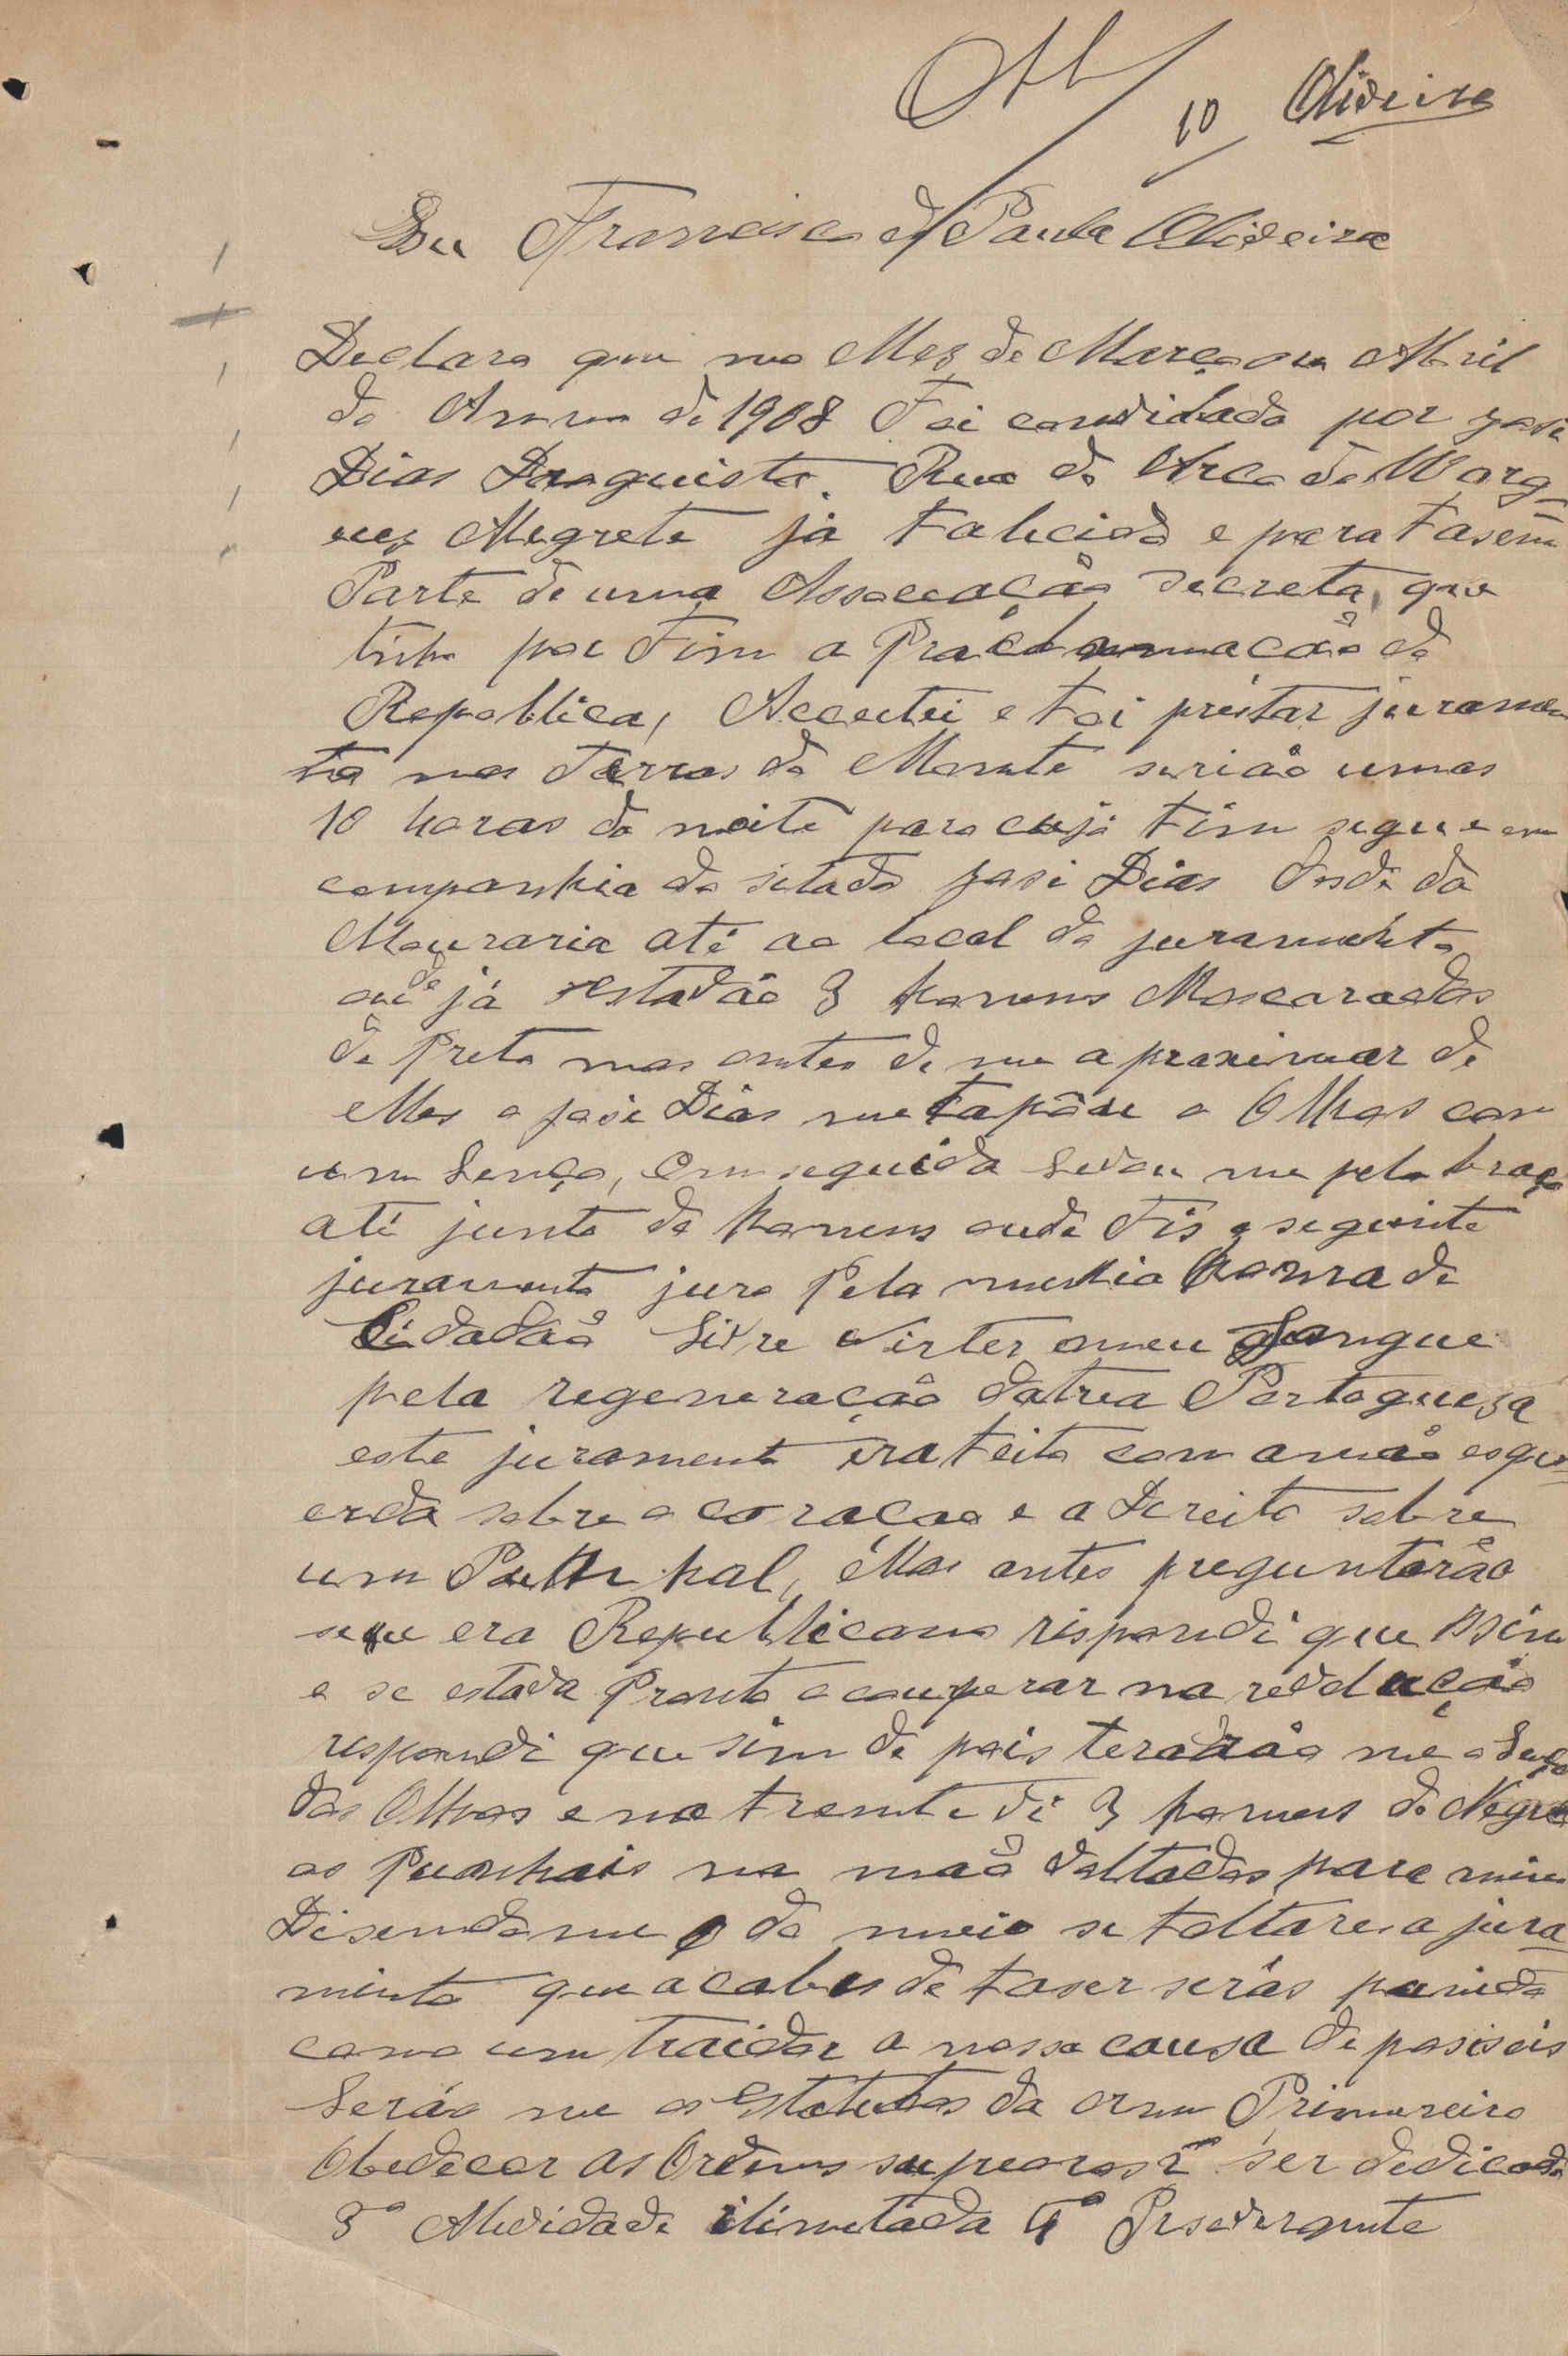 10 Oliveira
Eu Francisco de Paula Oliveira
Declaro que no Mez de Março ou Abril
do Anno de 1908 Foi convidado por José
Dias Droguista. Rua do Arco do Marq-
uez Alegrete já Falecido e para Fasem
Parte de uma Associação Secreta, que
tinha por Fim a Proclamação da
Republica, Acceutei e Foi préstar juramen
to nas Terras do Monte serião umas
10 horas da noite para cujo Fim segui em
companhia do sitado José Dias desde da
Mouraria até ao local do juramento
onde já estavão 3 homens Mascarados
de Preto mas antes de me aproximar de
elles o José Dias me tapou o Olhos com
um Lenço, em seguida levou me pelo braço
até junto do homens onde Fis o seguinte
juramento juro Pela minha honra de
Cidadão Livre Virter omeu Sangue
pela regeneração datria Portoguesa
este juramento era Feito com amão esqu-
erda sobre o coração e a Dereita sobre
um Punhal, Mas antes preguntarão
seeu era Republicano rispondi que Ssim
e se estava Pronto a couperar na revolução
respondi que sim de pois terarão me o Lenço
dos Olhos e na Frente vi 3 homens de Negro
os Punhais na mão voltados para mim
Disendome o do meio se Foltares o jura-
mento que acabas de Faser serás punido
como um traidor a nossa causa depois
Lerão me os Estatutos da Primeiro
Obedecer as Ordens supriores 2º Ser dedicado
3º Alividade ilimetada 4º Prseverante